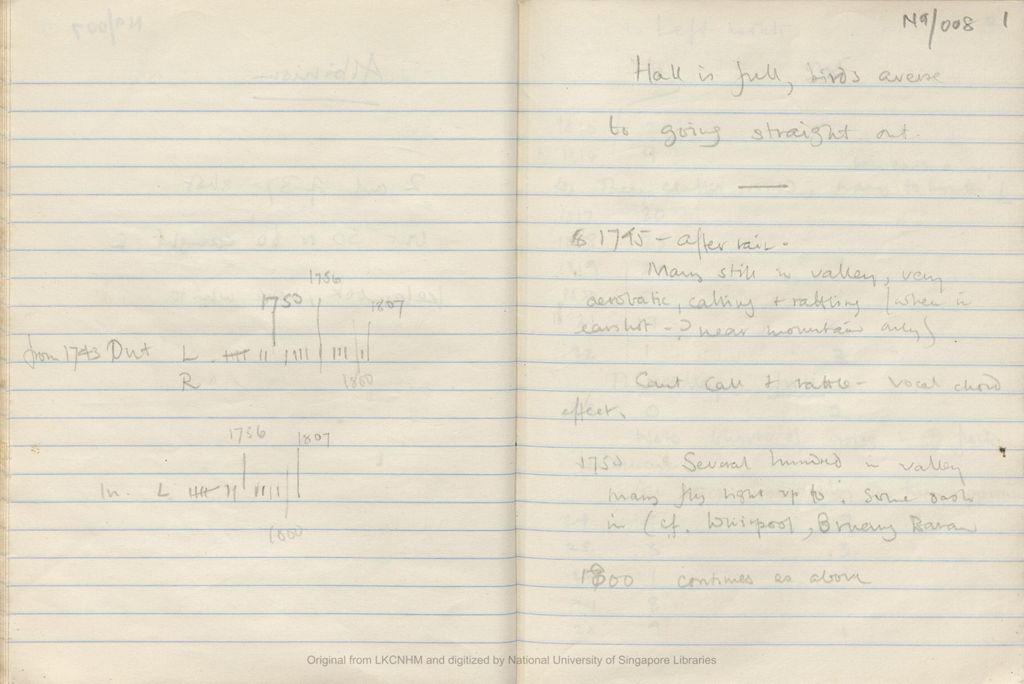 1756
1750
1807
from 1743 Out L
R
1800
1756
1807
In. L
1800
Na/008 1
Hall is full, birds averse
to going straight out.
1745 - after rain.
Many still in valley, very
aerobatic, calling + rattling (when in
earshot - ? near mountain only)
Cant call + rattle - vocal chord
effect.
1750 Several hundred in valley
many fly right up to. Some dash
in (cf. Whirlpool,
1800 continues as above
Original from LKCNHM and digitized by National University of Singapore Libraries